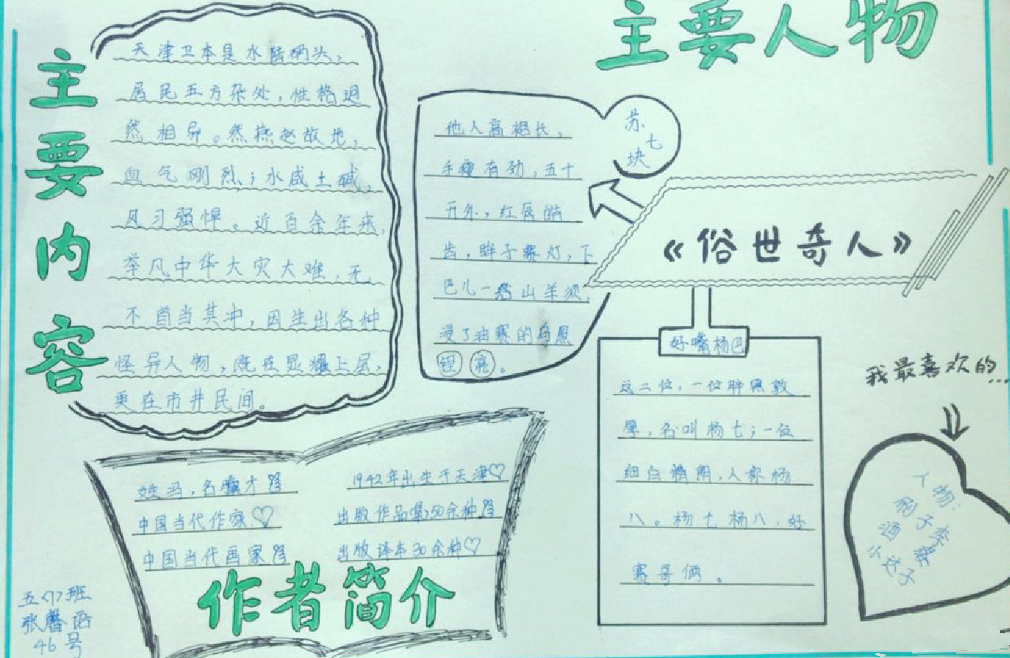 主要内容
天津卫本是水陆码头，
居民五方杂处，性格迥
然相异。然燕赵故地，
血气刚烈；水咸土碱，
风习强悍。近百余年来，
举凡中华大灾大难，无
不首当其冲，因生出各种
怪异人物，既在显耀上层，
更在市井民间。
主要人物
苏七块
他人高袍长，
手瘦有劲，五十
开外，红唇皓
齿，眸子赛灯，下
巴儿一绺山羊须，
浸了油赛的乌黑
锃亮。
《俗世奇人》
好嘴杨巴
这二位，一位胖黑敦
厚，名叫杨七；一位
细白精朗，人称杨
八。杨七杨八，好
赛哥俩。
我最喜欢的...
人物：
刷子李
酒婆
小达子
姓冯，名骥才
中国当代作家
中国当代画家
1942年出生于天津
出版作品50余种
出版译本30余种
作者简介
五〈7〉班
张馨函
46号